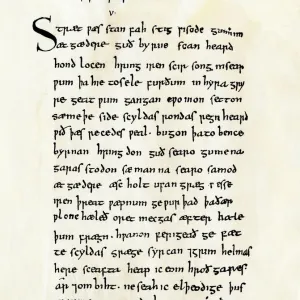 V.
Stræt ƿæs stan fah stig ƿisode gumum
æt gædere guð byrne scan heard
hond locen hring iren scir song in searƿ
um þa hie to sele furðum in hyra gry
re geat ƿum gangan cƿomon setton
sæmeþe side scyldas rondas regn hearde
ƿið þæs recedes ƿeal. bugon þa to bence
byrnan hring don guð searo gumena
garas stodon sæ man na searo samod
æt gædere æsc holt ufan græg ƿæs se
iren þreat ƿæpnum ge ƿurþad þa ðær
ƿlonc hæleð oret mecgas æfter hæle
þum frægn. hƿanon ferigeað ge fæt
te scyldas græge syrcan ⁊ grim helmas
here sceafta heap ic eom hroð gares
ar ⁊ om biht. ne seah ic elþeodige þus